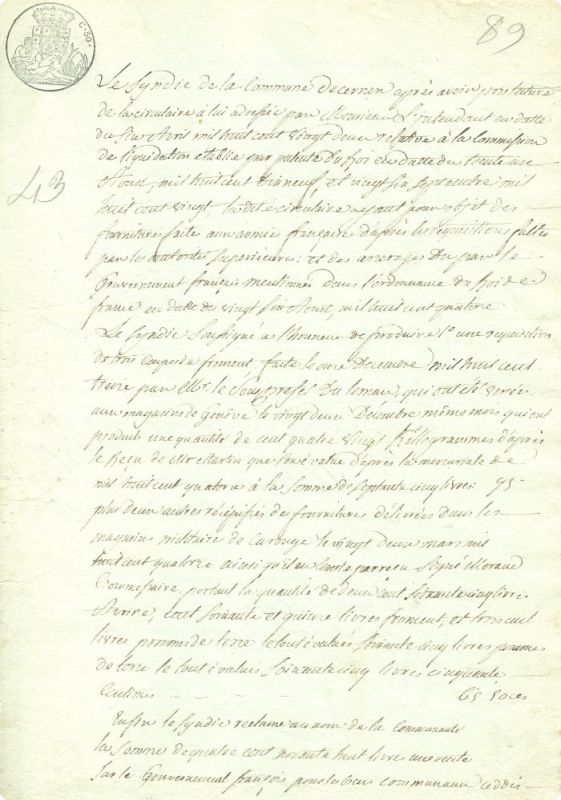 C. 50.
89
Le Syndic de la Commune de cernex après avoir pris lecture
de la circulaire à lui adressée par Monsieur L'intendant en datte
du Avril mil huit cent vingt deux relative à la Commission
de liquidation établie par patente du Roi en datte du trente un
Aoust, mil huit cent dix neuf, et vingt six septembre mil
huit cent vingt la dite circulaire ayant pour objet des
fournitures faites aux armées françaises d'après les réquisitions faittes
43
par les autorités supérieures : et des arrérages dus par le
Gouvernement français mentionnés dans l'ordonnance du Roi de
france en datte du vingt six Aoust, mil huit cent quatorze
Le Syndic soussigné à l'honneur de produire 1° une requisition
de trois coupes de froment faite le onze Decembre mil huit cent
treize par Mr. le Sous prefet du leman, qui ont été versées
aux magasins de Genève le vingt deux Décembre même mois qui ont
produit une quantité de cent quatre vingt Killogrammes d'après
le Reçu de Mr Martin que évalue d'après la mercuriale de
mil huit cent quatorze à la somme de septante cinq livres 75
plus deux autres récépissés des fournitures délivrées dans les
magasins militaire de Carouge le vingt deux mars mil
huit cent quatorze ainsi qu'il en par reçu signé
Commissaire, portant la quantité de deux cent soixante cinq livres
farine, cent soixante et quinze livres froment, et trois cent
livres pommes de terre le tout évalués soixante cinq livres pommes
de terre le tout évalués soixante cinq livres cinquante
Centimes 65 50 ces
Enfin le Syndic réclame au nom de la Communauté
la somme de quatre cent nonante huit livres une rente
sur le Gouvernement françois, pour les biens communaux cédés